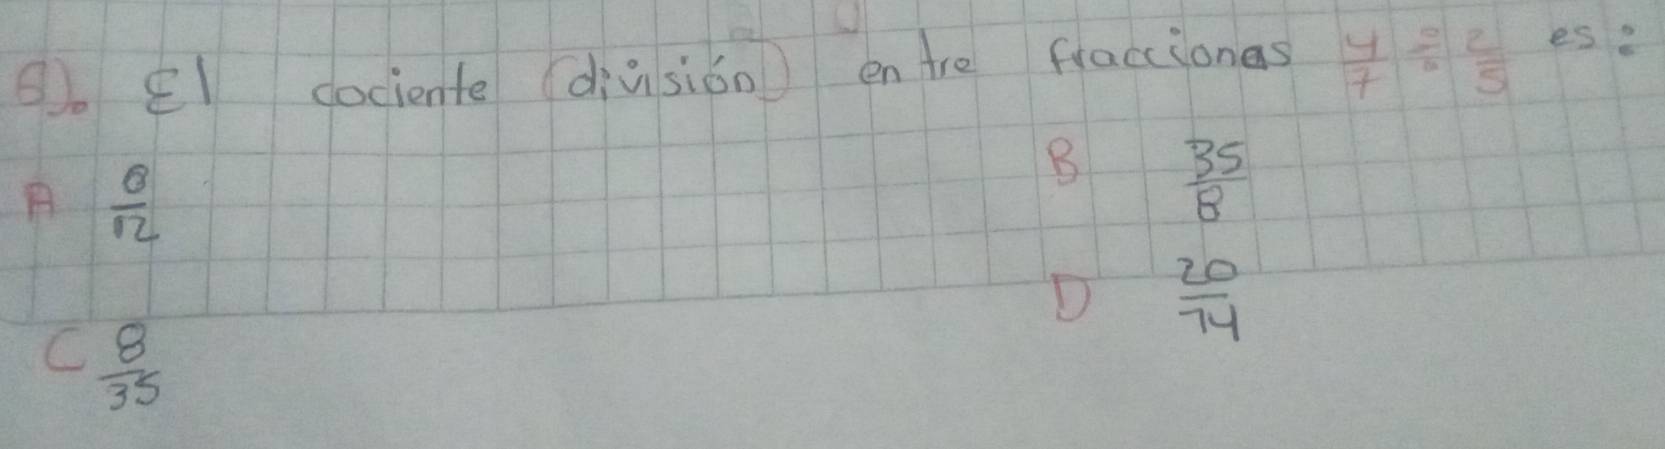 6). El cociente (división) entre fracciones 4/7 ÷ 2/5 es:
A 8/12
B 35/8
C 8/35
D 20/14